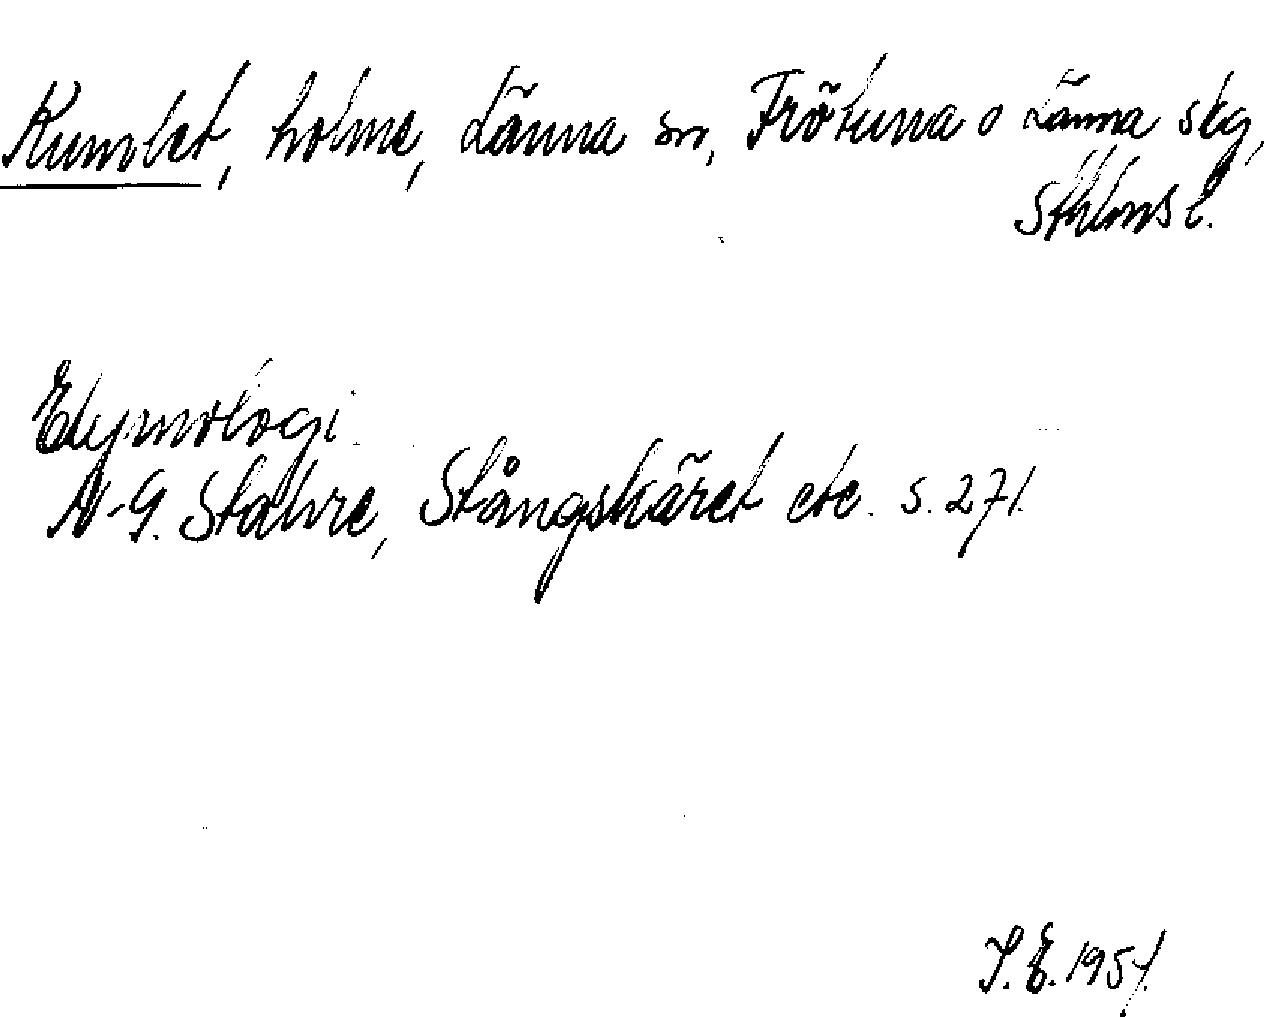 Kumlet, holme, Länna sn, Frötuna o Länna skg,
Sthlms l.
Etymologi
N-G. Stahre, Stångskäret etc. s. 271.
S. E. 1957.